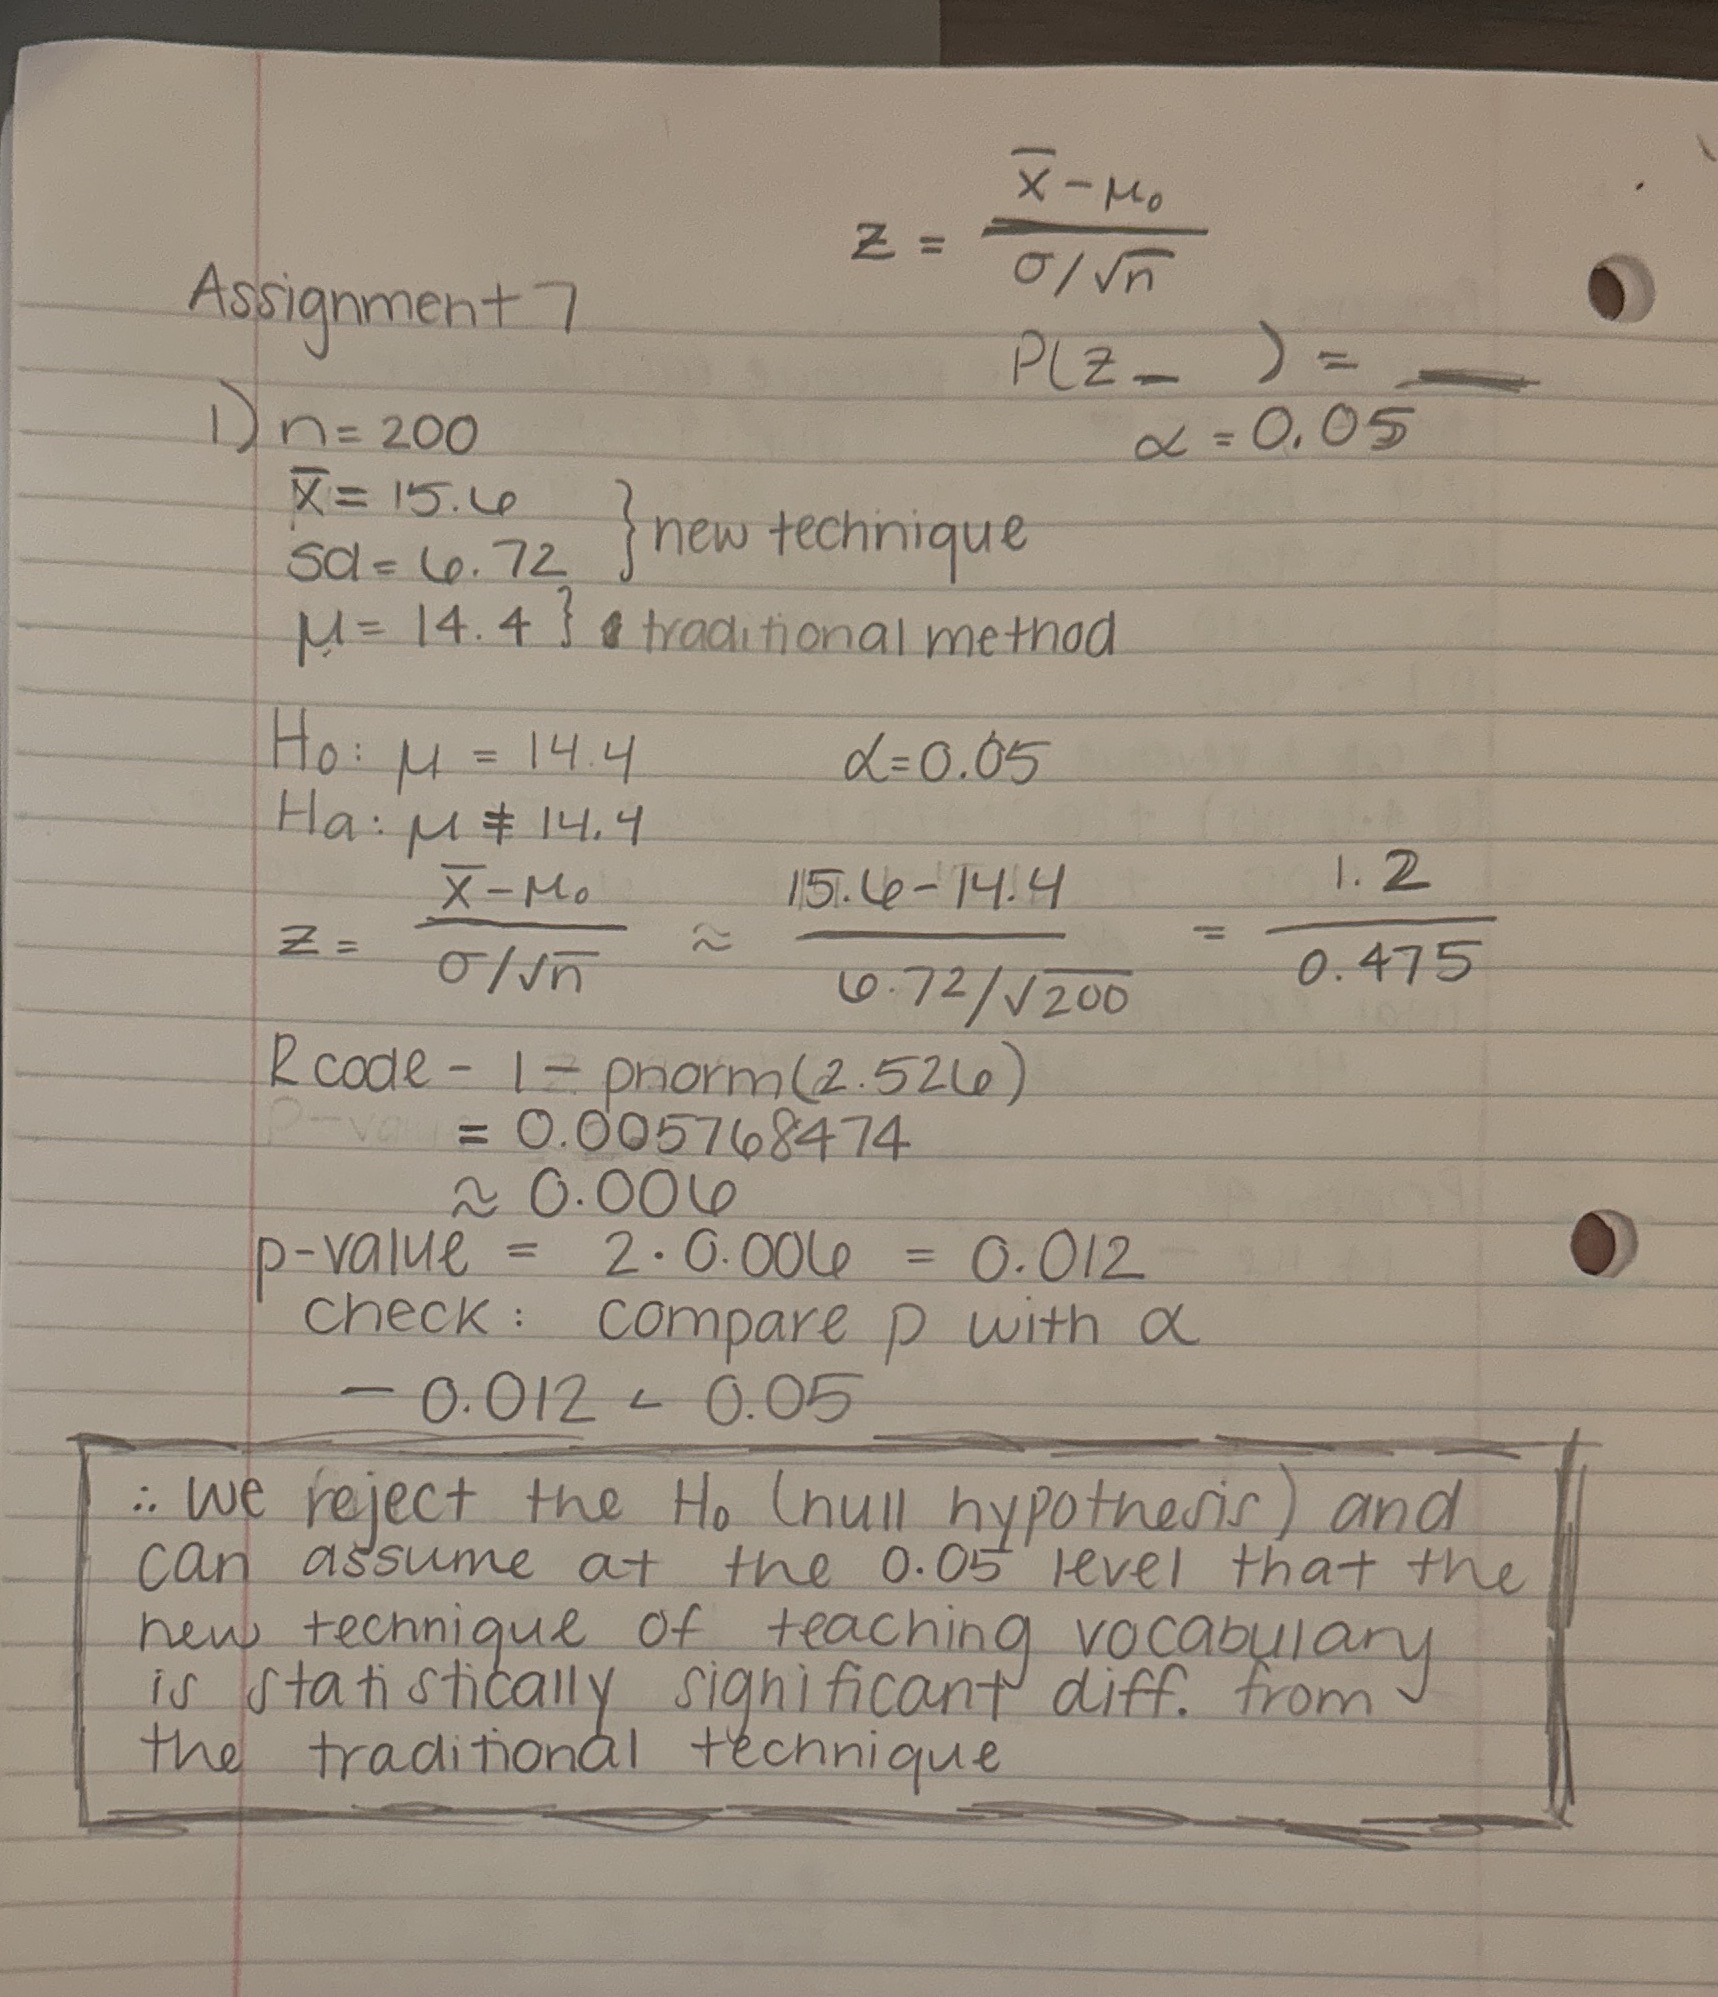 z = x̄ - μ₀ / σ/√n
Assignment 7
P(z _ ) = __
α = 0.05
1) n = 200
x̄ = 15.6
sd = 6.72 } new technique
μ = 14.4 } traditional method
H₀: μ = 14.4 α = 0.05
Ha: μ ≠ 14.4
z = x̄ - μ₀ / σ/√n ≈ 15.6 - 14.4 / 6.72/√200 = 1.2 / 0.475
R code - 1 - pnorm(2.526)
= 0.005768474
≈ 0.006
p-value = 2 · 0.006 = 0.012
check: compare p with α
- 0.012 < 0.05
∴ we reject the H₀ (null hypothesis) and
can assume at the 0.05 level that the
new technique of teaching vocabulary
is statistically significant diff. from
the traditional technique